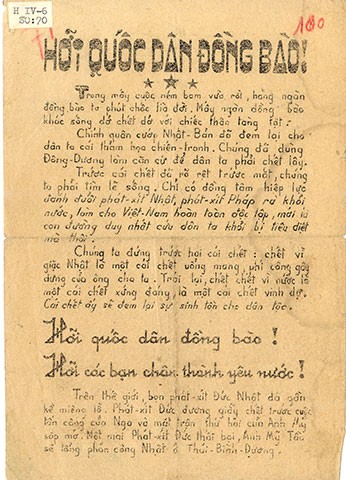 H IV-6
SU:70
100
HỠI QUỐC DÂN ĐỒNG BÀO!
Trong mấy cuộc ném bom vừa rồi, hàng ngàn
đồng bào ta phút chốc lìa đời. Mấy ngàn đồng bào
khác sống dở chết dở với chiếc thân tàng tật:
Chính quân cướp Nhật-Bản đã đem lại cho
dân ta cái thảm họa chiến-tranh. Chúng đã dùng
Đông-Dương làm căn cứ để dân ta phải chết lây.
Trước cái chết đã rõ rệt trước mắt, chúng
ta phải tìm lẽ sống. Chỉ có đồng tâm hiệp lực
đánh đuổi phát-xít Nhật, phát-xít Pháp ra khỏi
nước, làm cho Việt-Nam hoàn toàn độc lập, mới là
con đường duy nhất cứu dân ta khỏi bị tiêu diệt
mà thôi.
Chúng ta đứng trước hai cái chết: chết vì
giặc Nhật là một cái chết uổng mạng, phí công gây
dựng của ông cha ta. Trái lại, chết vì nước là
một cái chết xứng đáng, là một cái chết vinh dự.
Cái chết ấy sẽ đem lại sự sinh tồn cho dân tộc.
Hỡi quốc dân đồng bào!
Hỡi các bạn chân thành yêu nước!
Trên thế giới, bọn phát-xít Đức Nhật đã gần
kề miệng lỗ. Phát-xít Đức đương giẫy chết trước cuộc
tấn công của Nga và mặt trận thứ hai của Anh Mỹ
sắp mở. Một mai Phát-xít Đức thất bại, Anh Mỹ Tầu
sẽ tổng phản công Nhật ở Thái-Bình-Dương.